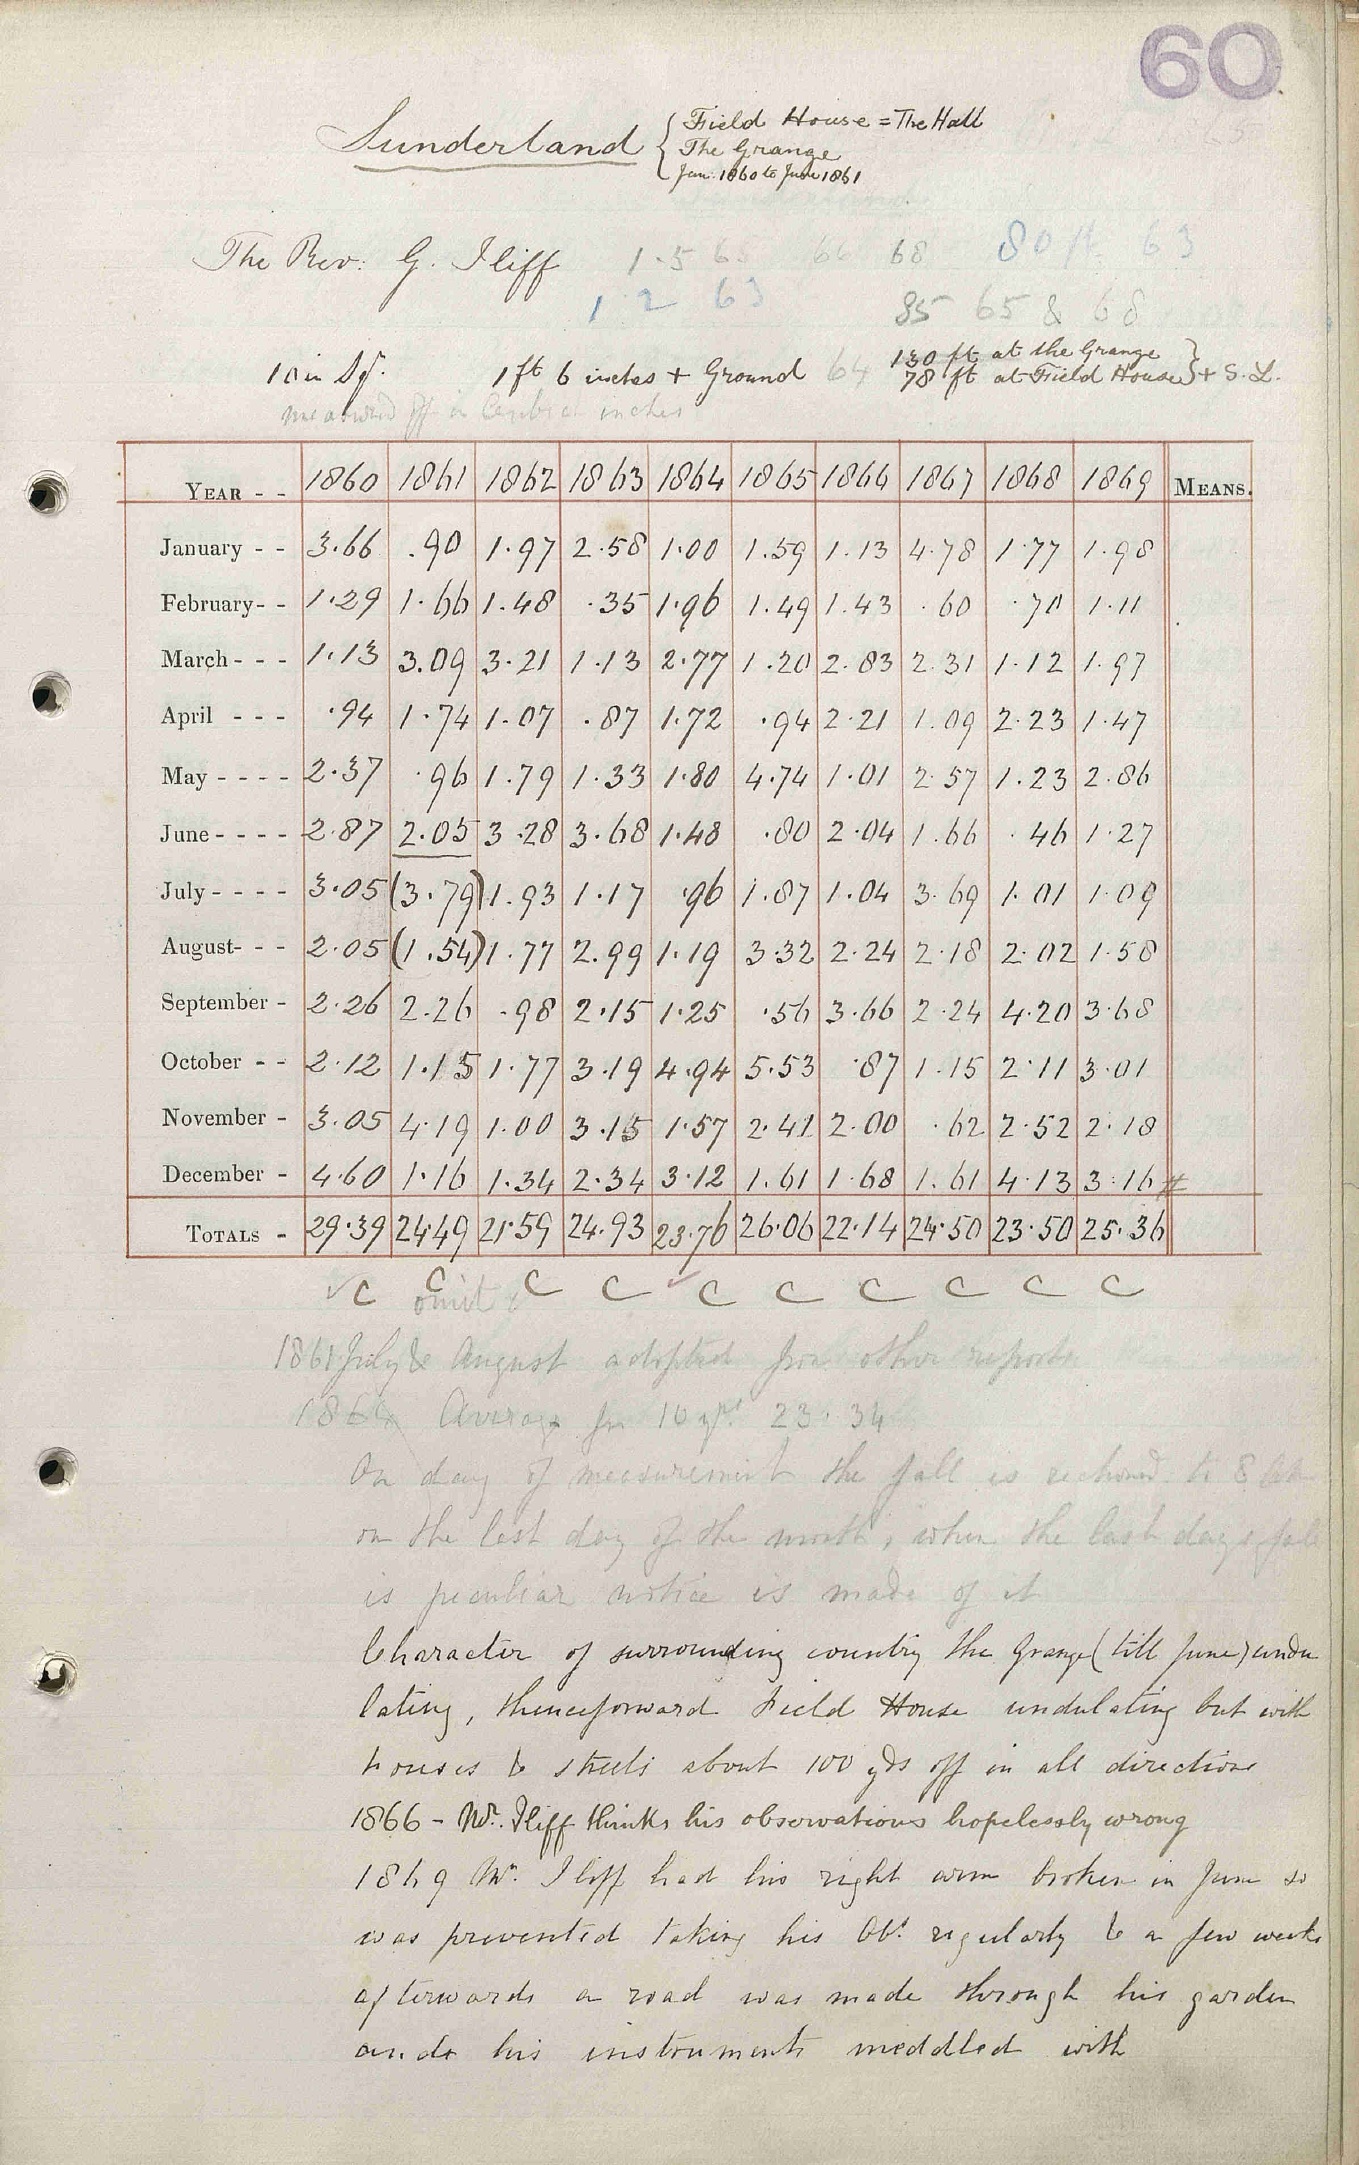 60
Sunderland { Field House = The Hall
The Grange
Jan. 1860 to June 1861
The Rev: G. Iliff 1.5 65 66 68 80 ft 63
1 2 63 85 65 & 68
10 in Sq. 1 ft 6 inches + Ground 64 130 ft at the Grange
78 ft at Field House } + S. L.
measured off in Cubical inches
YEAR - - 1860 1861 1862 1863 1864 1865 1866 1867 1868 1869 MEANS.
January - - 3.66 .90 1.97 2.58 1.00 1.59 1.13 4.78 1.77 1.98
February - - 1.29 1.66 1.48 .35 1.96 1.49 1.43 .60 .70 1.11
March - - - 1.13 3.09 3.21 1.13 2.77 1.20 2.83 2.31 1.12 1.97
April - - - .94 1.74 1.07 .87 1.72 .94 2.21 1.09 2.23 1.47
May - - - - 2.37 .96 1.79 1.33 1.80 4.74 1.01 2.57 1.23 2.86
June - - - - 2.87 2.05 3.28 3.68 1.48 .80 2.04 1.66 .46 1.27
July - - - - 3.05 (3.79) 1.93 1.17 .96 1.87 1.04 3.69 1.01 1.09
August - - - 2.05 (1.54) 1.77 2.99 1.19 3.32 2.24 2.18 2.02 1.58
September - 2.26 2.26 .98 2.15 1.25 .56 3.66 2.24 4.20 3.68
October - - 2.12 1.15 1.77 3.19 4.94 5.53 .87 1.15 2.11 3.01
November - 3.05 4.19 1.00 3.15 1.57 2.41 2.00 .62 2.52 2.18
December - 4.60 1.16 1.34 2.34 3.12 1.61 1.68 1.61 4.13 3.16 #
TOTALS - 29.39 24.49 21.59 24.93 23.76 26.06 22.14 24.50 23.50 25.36
✓ C C C C ✓ C C C C C C
omit
1861 July & August adopted from other reports
Average for 10 yrs 23.34
On day of measurement the fall is reckoned to 8
on the last day of the month, when the last days fall
is peculiar notice is made of it
Character of surrounding country the Grange (till June) undu
lating, thenceforward Field House undulating but with
houses & streets about 100 yds off in all directions
1866 - Mr. Iliff thinks his observations hopelessly wrong
1869 Mr. Iliff had his right arm broken in June so
was prevented taking his Obs. regularly & a few weeks
afterwards a road was made through his garden
and his instruments meddled with